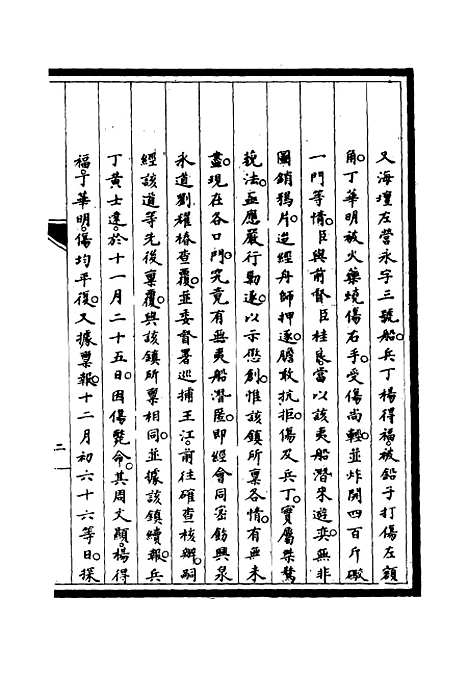 又海壇左營永字三號船。兵丁楊得福。被鉛子打傷左額
角。丁華明被火藥燒傷右手。受傷尚輕。並炸開四百斤礮
一門等情。臣與前督臣桂良當以該夷船潛來遊奕。無非
圖銷鴉片。迨經舟師押逐。膽敢抗拒。傷及兵丁。實屬桀驁
藐法。亟應嚴行勦逐。以示懲創。惟該鎮所稟各情。有無未
盡。現在各口門。究竟有無夷船潛匿。即經會同密飭興泉
永道劉耀椿查覆。並委督署巡捕王江。前往確查核辦。嗣
經該道等先後稟覆。與該鎮所稟相同。並據該鎮續報。兵
丁黃士達。於十一月二十五日。因傷斃命。其周文顯。楊得
福。丁華明。傷均平復。又據稟報。十二月初六十六等日。探
二